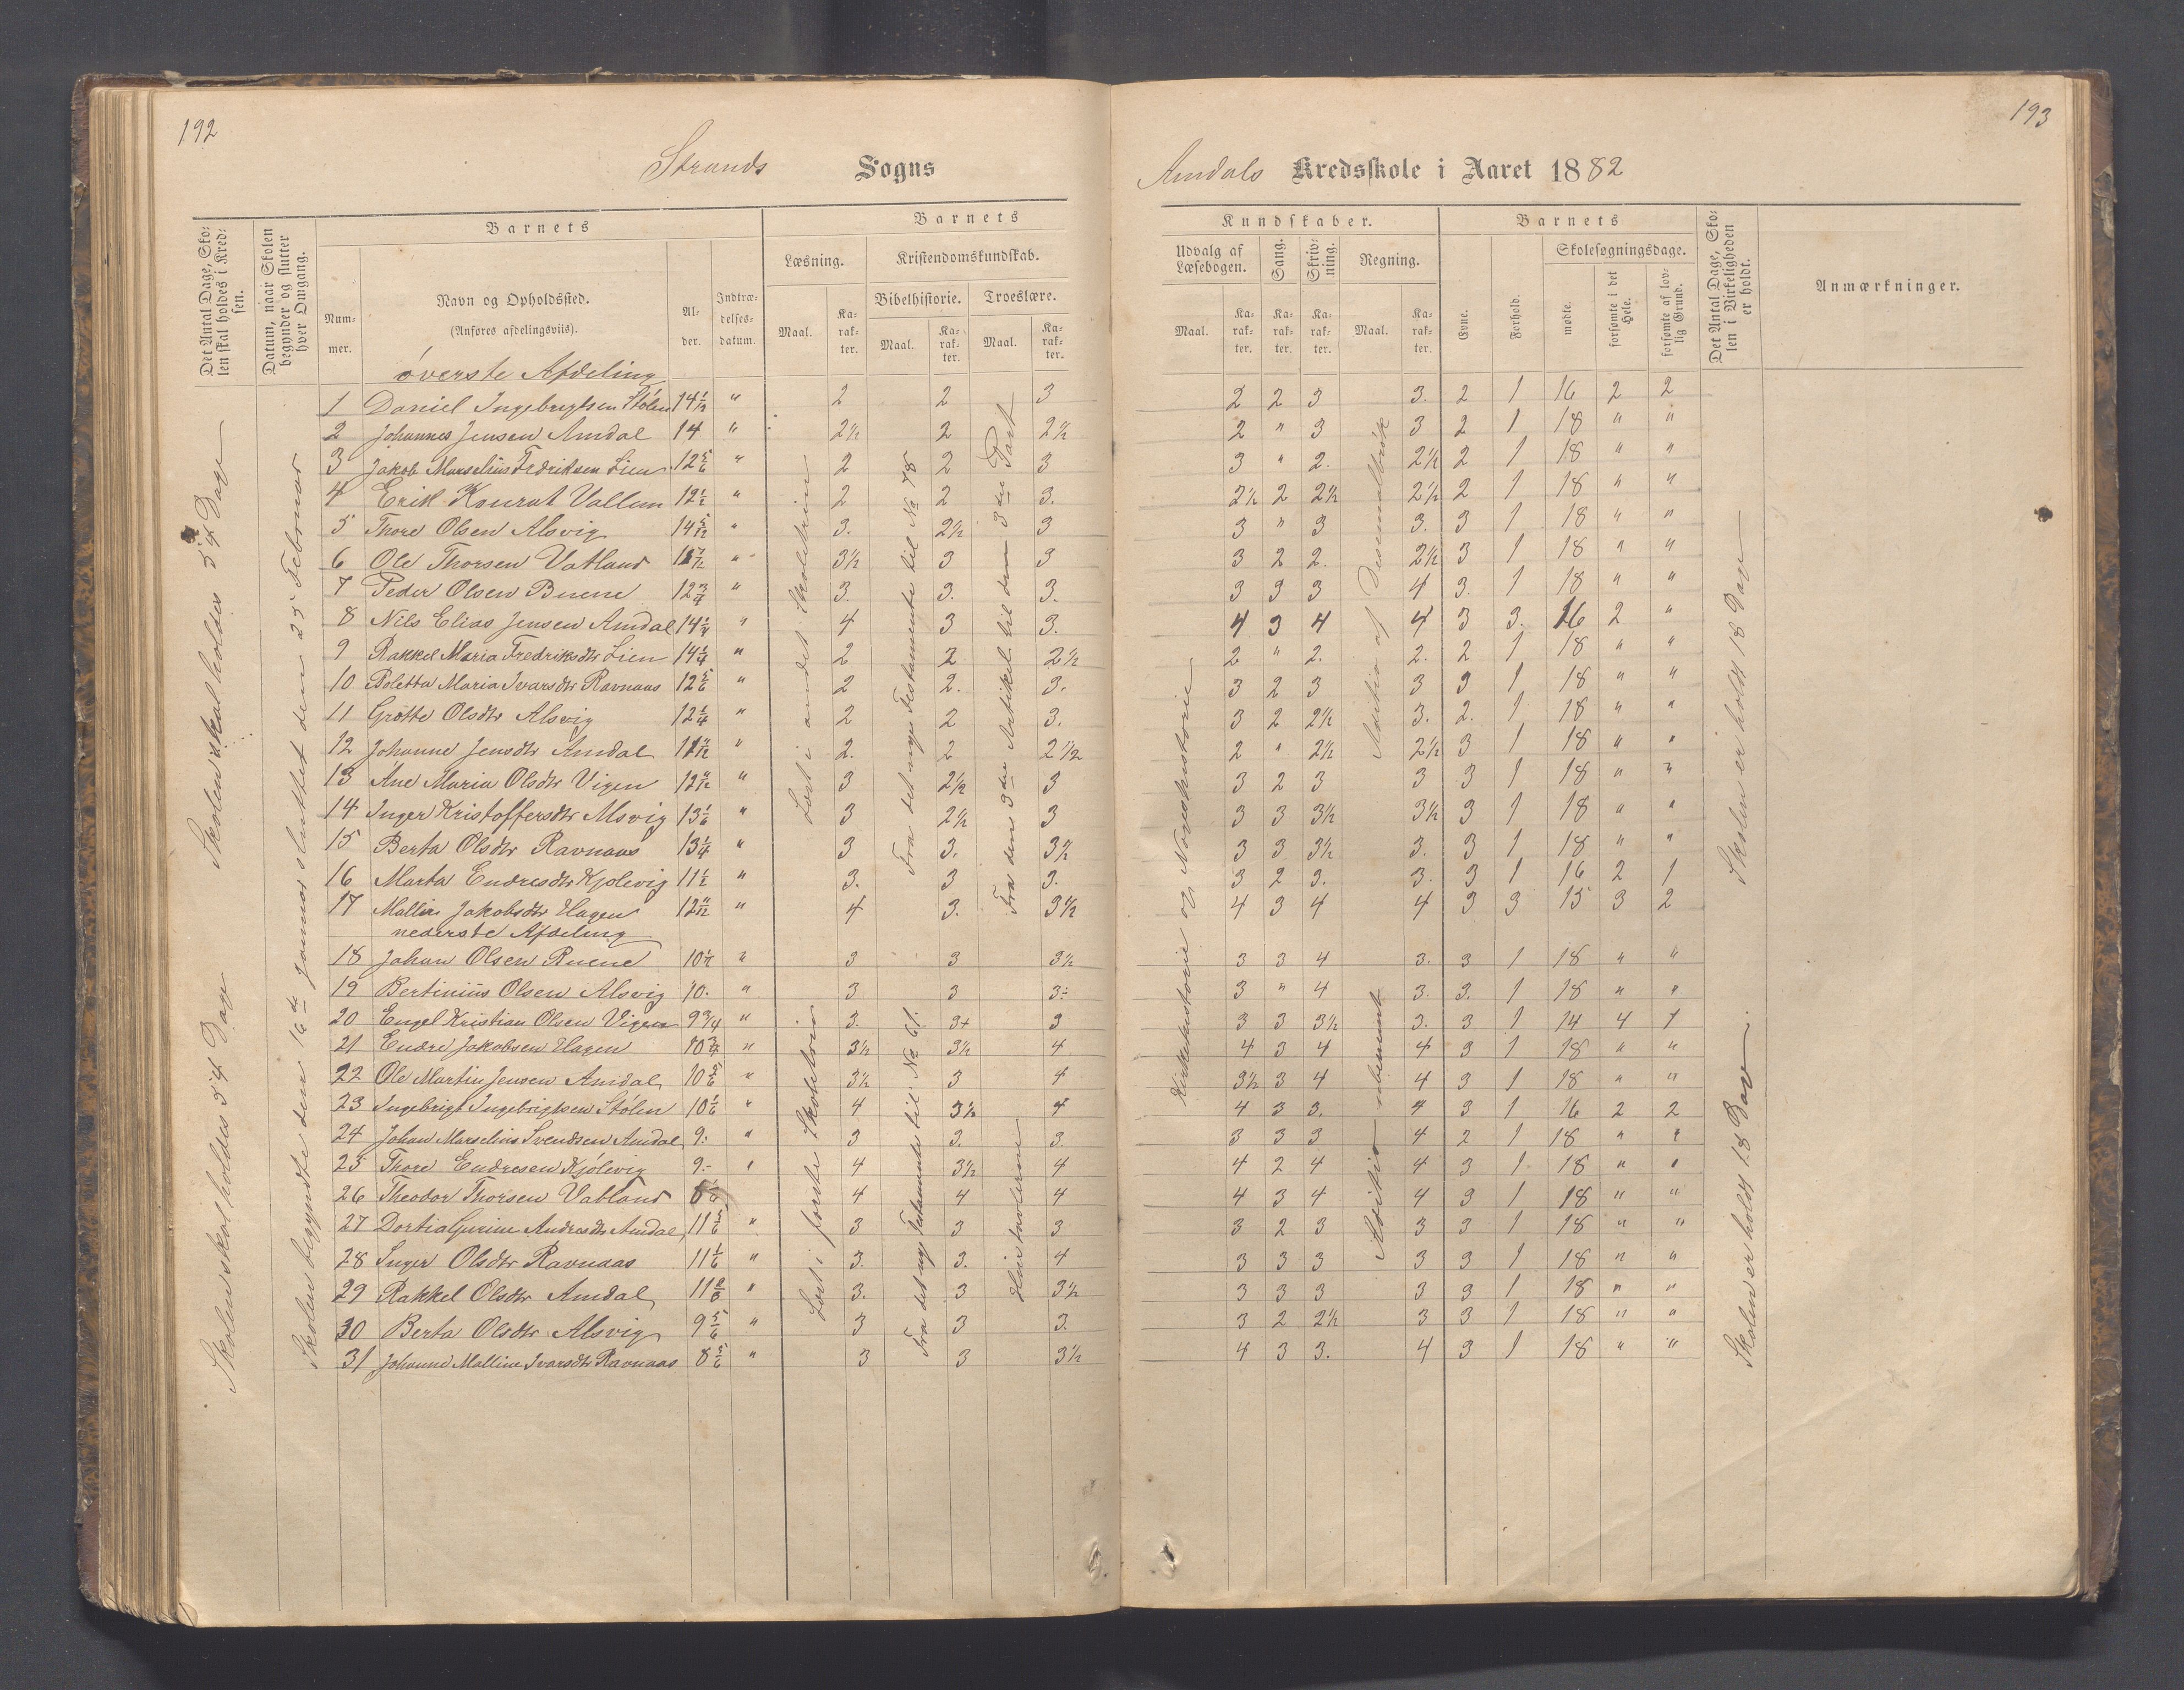 192
193
Strands Sogns
Amdals Kredsskole i Aaret 1882
Det Antal Dage, Skolen skal holdes i Kredsen.
Datum, naar Skolen begynder og slutter hver Omgang.
Barnets
Nummer.
Navn og Opholdssted.
(Anføres afdelingsviis).
Alder.
Indtrædelsesdatum.
Barnets
Læsning.
Maal.
Karakter.
Kristendomskundskab.
Bibelhistorie.
Maal.
Karakter.
Troeslære.
Maal.
Karakter.
Kundskaber.
Udvalg af Læsebogen.
Maal.
Karakter.
Sang.
Karakter.
Skrivning.
Karakter.
Regning.
Maal.
Karakter.
Barnets
Evne.
Forhold.
Skolesøgningsdage.
mødte.
forsømte i det Hele.
forsømte af lovlig Grund.
Det Antal Dage, Skolen i Virkeligheden er holdt.
Anmærkninger.
øverste Afdeling
1 Daniel Ingebrigtsen Stølen 14 1/12 " 2 2 3 2 2 3 3. 2 1 16 2 2
2 Johannes Jensen Amdal 14 " 2½ 2 2½ 2 " 3 3 2 1 18 " "
3 Jakob Marselius Fredriksen Lien 12 5/6 " 2 2 3 3 " 2. 2½ 2 1 18 " "
4 Erik Konrat Vallem 12 ½ " 2 2 3. 2½ 2 2½ 2½ 2 1 18 " "
5 Thore Olsen Alsvig 14 5/12 " 3. 2½ 3 3 " 3 3. 3 1 18 " "
6 Ole Thorsen Vatland 11 7/12 " 3½ 3 3 3 2 2. 2½ 3 1 18 " "
7 Peder Olsen Buene 12 3/4 " 3. 3. 3. 3 3 3 4 3. 1 18 " "
8 Nils Elias Jensen Amdal 14 ¼ " 4 3 3. 4 3 4 4 3 3. 16 2 "
9 Rakkel Maria Fredriksdtr Lien 14 ¼ " 2 2 2½ 2 " 2. 2. 2 1 18 " "
10 Boletta Maria Ivarsdtr Ravnaas 12 5/6 " 2 2. 3. 3 2 3 3 3 1 18 " "
11 Grøtte Olsdtr Alsvig 12 ¼ " 2 2 3. 3 2 2½ 3. 2. 1 18 " "
12 Johanne Jensdtr Amdal 11 11/12 " 2. 2 2½ 2 " 2½ 2½ 3 1 18 " "
13 Ane Maria Olsdtr Vigen 12 11/12 " 3 2½ 3 3 2 3 3 3 1 18 " "
14 Inger Kristoffersdtr Alsvig 13 1/6 " 3 2½ 3 3 3 3½ 3½ 3 1 18 " "
15 Berta Olsdtr Ravnaas 13 ¼ " 3 3. 3½ 3 3 3½ 3. 3 1 18 " "
16 Marta Endresdtr Kjølevig 11 ½ " 3. 3 3. 3 2 3. 3. 3 1 16 2 1
17 Malline Jakobsdtr Hagen 12 11/12 " 4 3. 3½ 4 3 4 4 3 3 15 3 2
nederste Afdeling
18 Johan Olsen Buene 10 ½ " 3 3 3½ 3 3 4 3. 3 1 18 " "
19 Bertinius Olsen Alsvig 10. " 3 3 3÷ 3 " 4 3. 3. 1 18 " "
20 Engel Kristian Olsen Vigen 9 3/4 " 3. 3+ 3 3 3 3½ 3. 3 1 14 4 1
21 Endre Jakobsen Hagen 10 3/4 " 3½ 3½ 4 4 3 4 4 3 1 18 " "
22 Ole Martin Jensen Amdal 10 5/6 " 3½ 3 4 3½ 3 4 4 3 1 18 " "
23 Ingebrigt Ingebrigtsen Stølen 10 1/6 " 4 3½ 4 4 3 3. 4 3 1 16 2 2
24 Johan Marselius Svendsen Amdal 9. " 3 3. 3. 3 3 3 4 2 1 18 " "
25 Thore Endresen Kjølevig 9.- " 4 3½ 4 4 2 4 4 3 1 18 " "
26 Theodor Thorsen Vatland 4 4 4 4 3 4 4 3 1 18 " "
27 Dortia Gurine Andresdtr Amdal 11 5/6 " 3 3 3 3 2 3 3 3 1 18 " "
28 Inger Olsdtr Ravnaas 11 1/6 " 3. 3. 4 3 3 3 3 3 1 18 " "
29 Rakkel Olsdtr Amdal 11 " 3. 3 3½ 3 3 3 3 3 1 18 " "
30 Berta Olsdtr Alsvig 9 5/6 " 3 3 3. 3 2 2½ 3 3 1 18 " "
31 Johanne Malline Ivarsdtr Ravnaas 8 5/6 " 3 3 3½ 4 3 3. 4 3 1 18 " "
Skolen skal holdes 54 Dage
Skolen skal holdes 54 Dage
Skolen begyndte den 16de Januar sluttet den 25 Februar
Læst i andet Skoletrin
Læst i første Skoletrin
Fra det nye Testamente til No 78
Fra det nye Testamente til No 61.
Fra den 3die Artikel til den 3die Part
Kirkehistorie og Norgeshistorie
Adition af Desimalbrøk
Adition ubenævnt
Skolen er holdt 18 Dage
Skolen er holdt 18 Dav